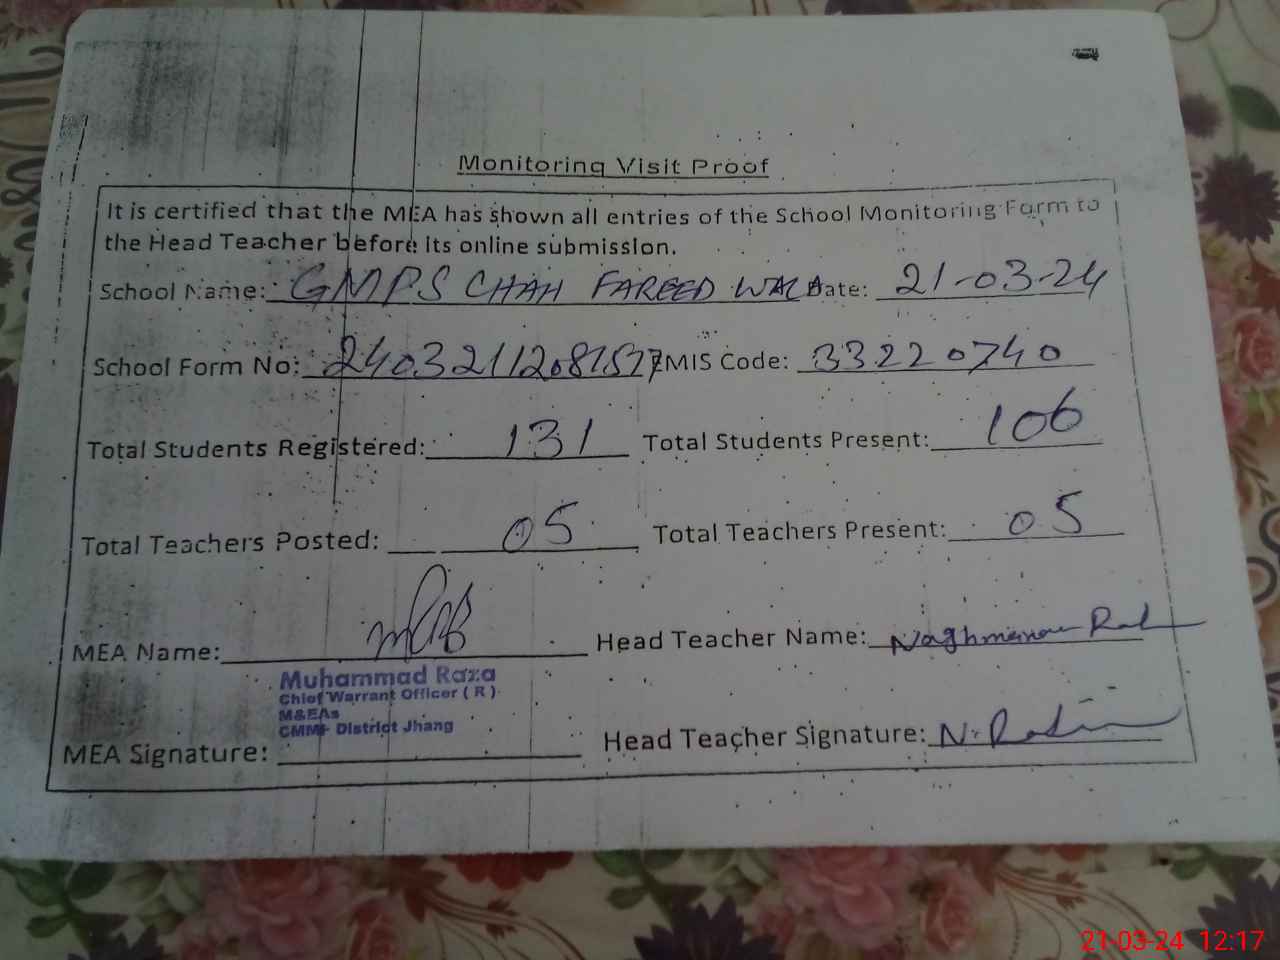 Monitoring Visit Proof
It is certified that the MEA has shown all entries of the School Monitoring Form to
the Head Teacher before its online submission.
School Name: GMPS CHAH FAREED WALA Date: 21-03-24
School Form No: MIS Code: 33220740
Total Students Registered: 131 Total Students Present: 106
Total Teachers Posted: 05 Total Teachers Present: 05
MEA Name: Head Teacher Name:
Muhammad Raza
Chief Warrant Officer ( R )
M&EAs
CMMF District Jhang
MEA Signature: Head Teacher Signature:
21-03-24 12:17